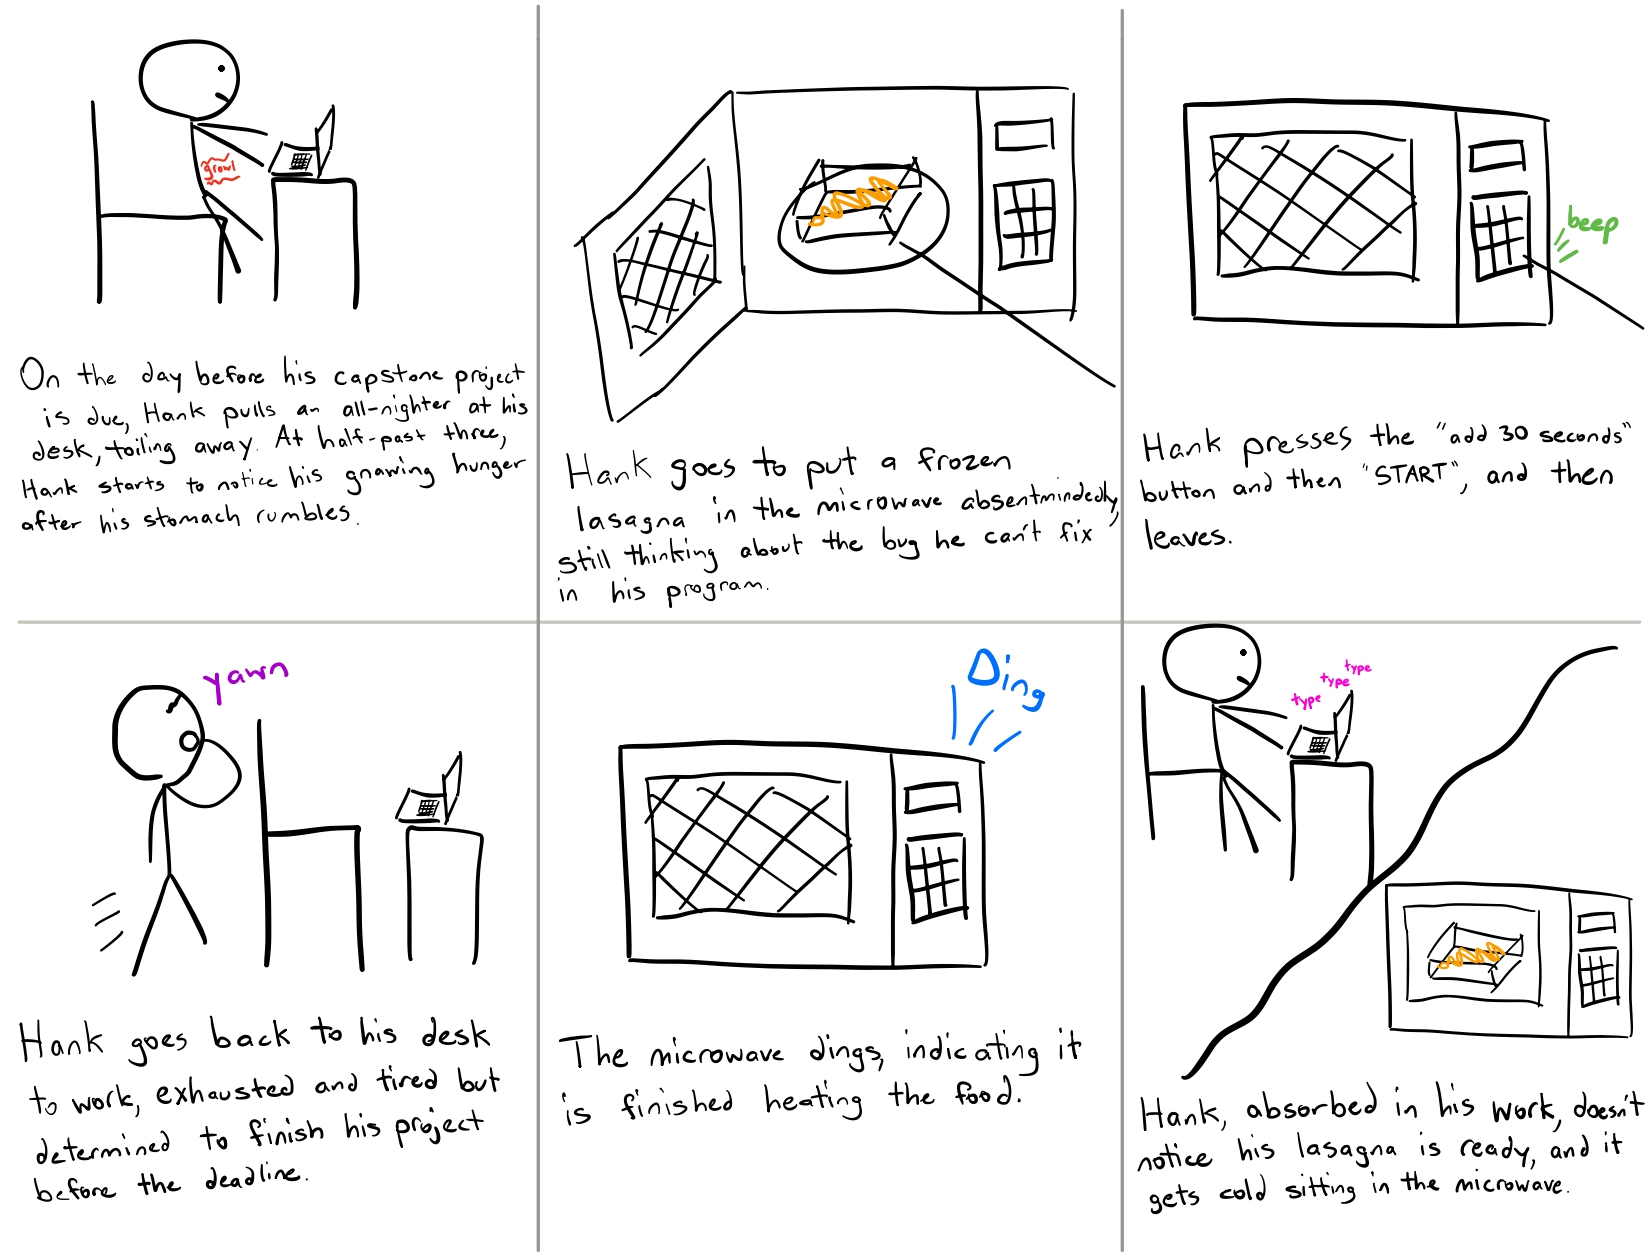 growl
On the day before his capstone project
is due, Hank pulls an all-nighter at his
desk, toiling away. At half-past three,
Hank starts to notice his gnawing hunger
after his stomach rumbles.
Hank goes to put a frozen
lasagna in the microwave absentmindedly,
still thinking about the bug he can't fix
in his program.
beep
Hank presses the "add 30 seconds"
button and then "START", and then
leaves.
yawn
Hank goes back to his desk
to work, exhausted and tired but
determined to finish his project
before the deadline.
Ding
The microwave dings, indicating it
is finished heating the food.
type
type
type
Hank, absorbed in his work, doesn't
notice his lasagna is ready, and it
gets cold sitting in the microwave.